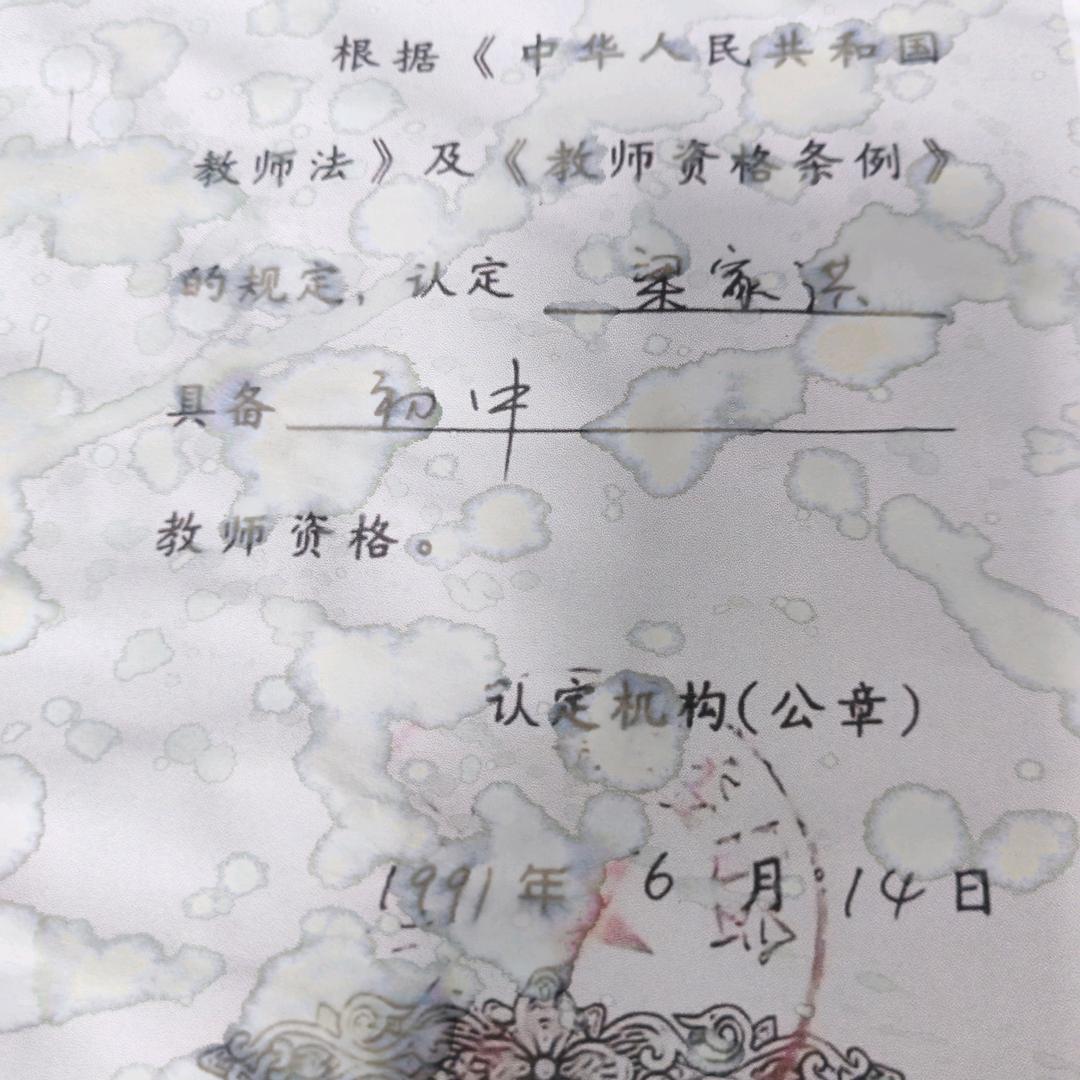 根据《中华人民共和国
教师法》及《教师资格条例》
的规定，认定 梁家洪
具备 初中
教师资格。
认定机构(公章)
1991年 6月14日